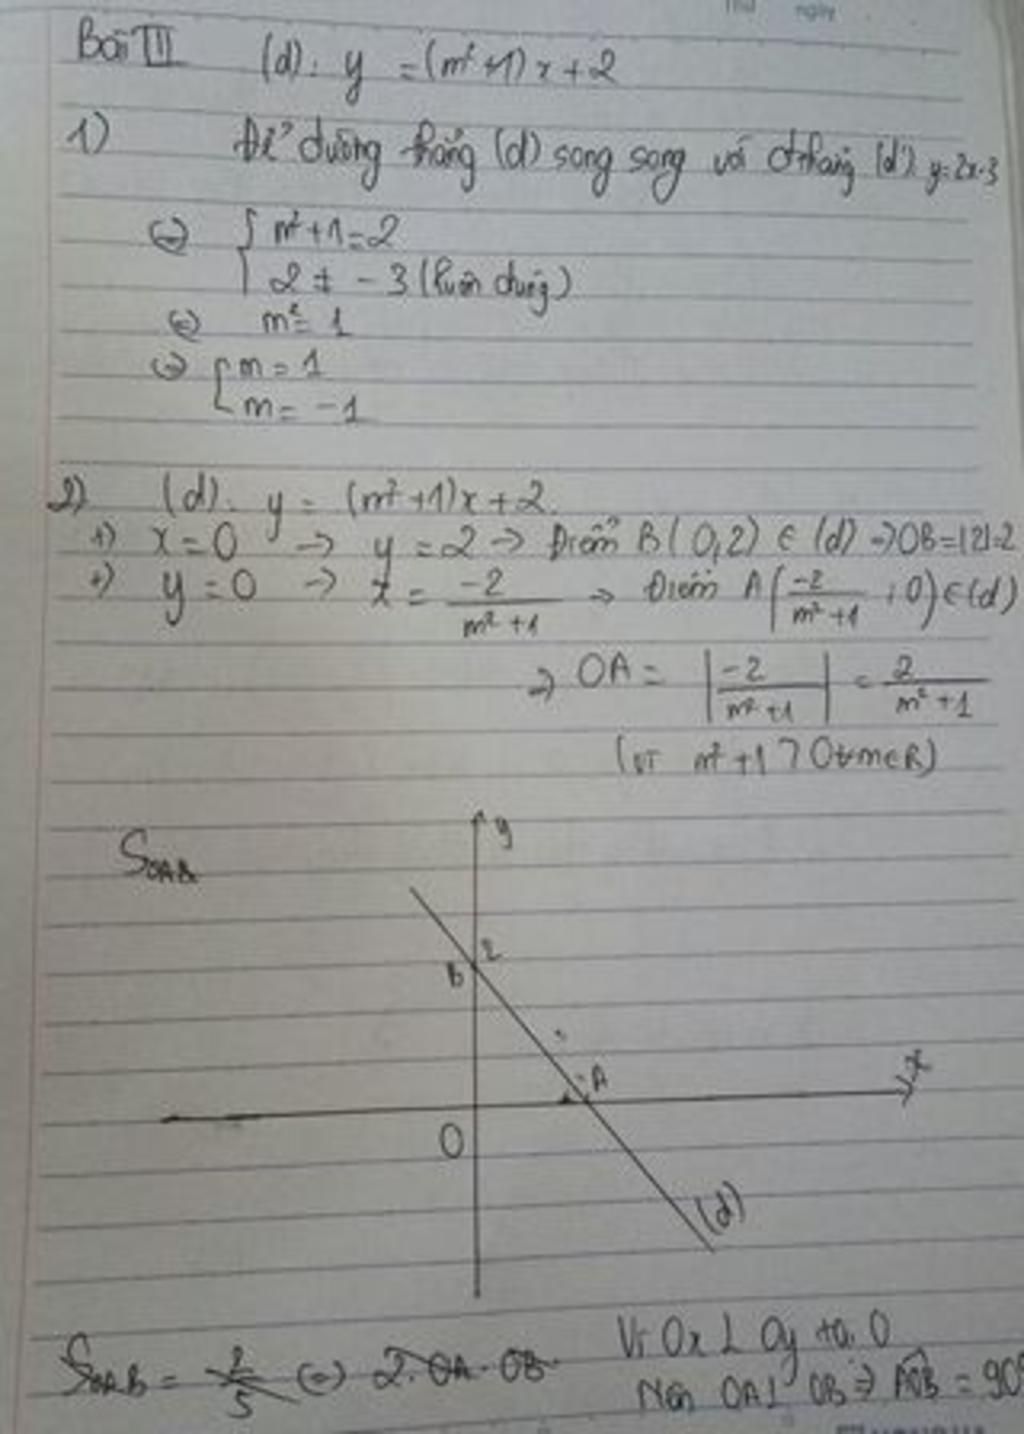 Thứ ngày
Bài III (d): y = (m²+1)x+2
1) Để đường thẳng (d) song song với đthẳng (d'): y=2x-3
(=) { m²+1=2
2 ≠ -3 (luôn đúng)
(=) m²= 1
(=) [ m = 1
m = -1
2) (d): y = (m²+1)x+2
+) x=0 → y=2 → Điểm B(0,2) ∈ (d) → OB=|2|=2
+) y=0 → x = -2/(m²+1) → Điểm A(-2/(m²+1) ; 0) ∈ (d)
=> OA = |-2/(m²+1)| = 2/(m²+1)
(vì m²+1 > 0 ∀m∈R)
SOAB
y
2
B
A
x
O
(d)
SOAB = (=) 2. OA. OB
Vì Ox ⊥ Oy tại O
Nên OA ⊥ OB => AOB = 90°